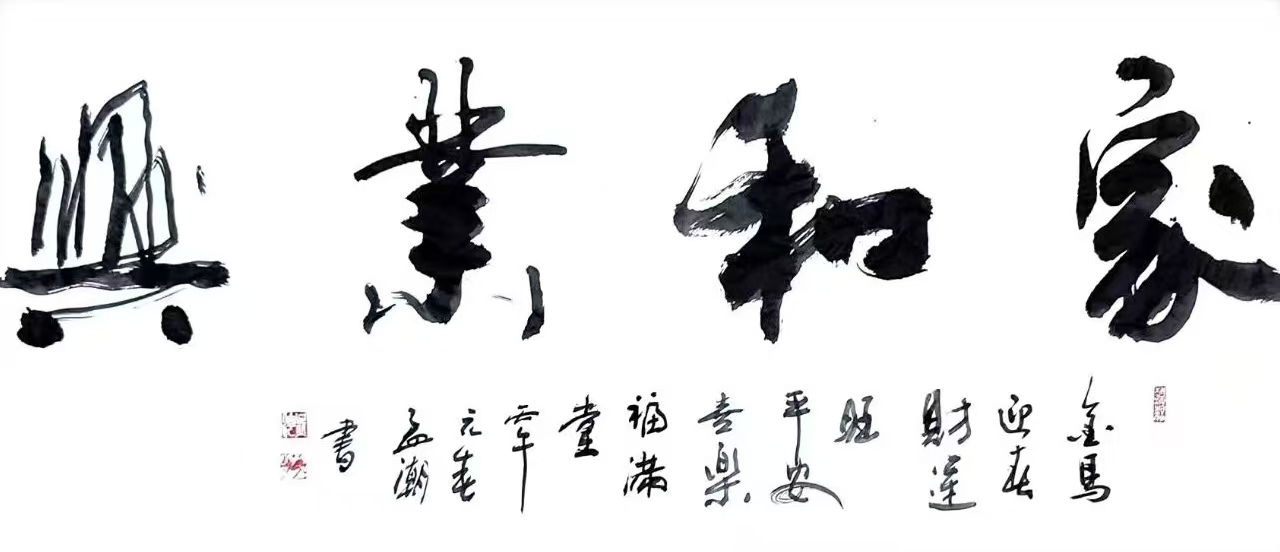 家和業興
金馬
迎春
財運
旺
平安
喜樂
福滿
堂
丙午
元春
孟潮
書